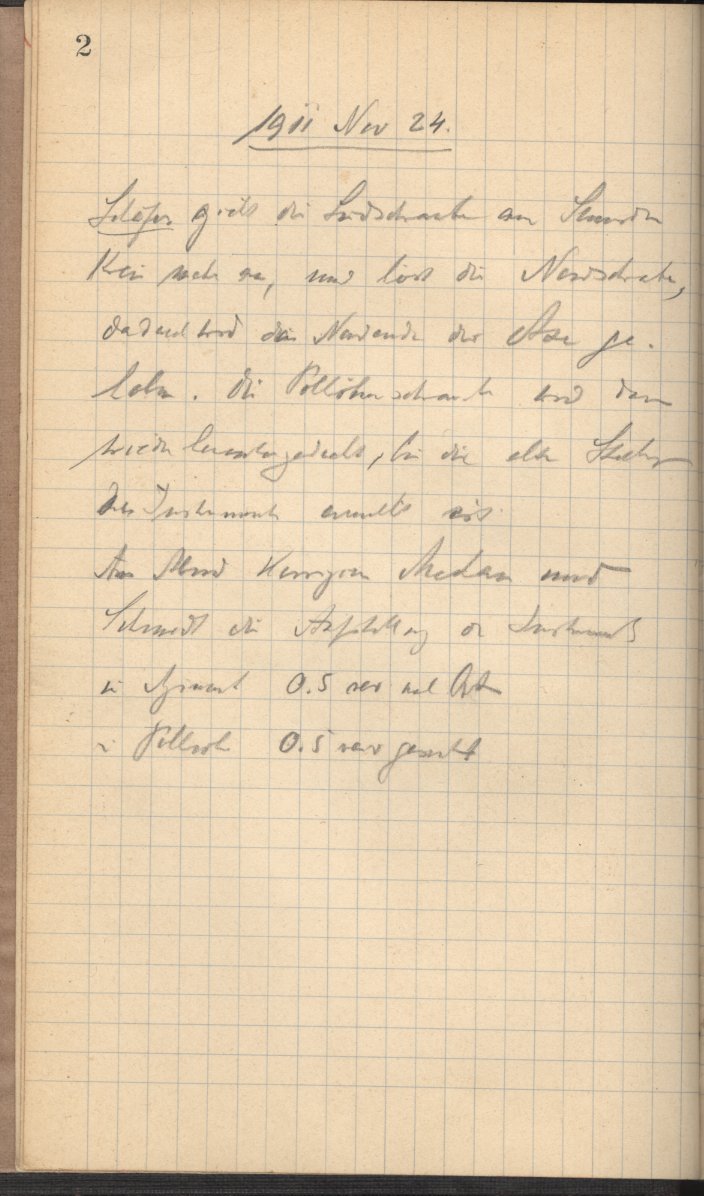 2
1911 Nov 24.
Schäfer zieht die Südschraube am Stunden
Kreis mehr an, und löst die Nordschraube,
dadurch wird das Nordende der Axe ge-
hoben. Die Polhöhenschraube wird dann
wieder heruntergedreht, bis die alte
des Instruments erreicht ist.
Am Abend Korrigieren und
Schmidt die Aufstellung des Instruments
in Azimut 0.5 rev nach Ost
in Polhöhe 0.5 rev gesenkt